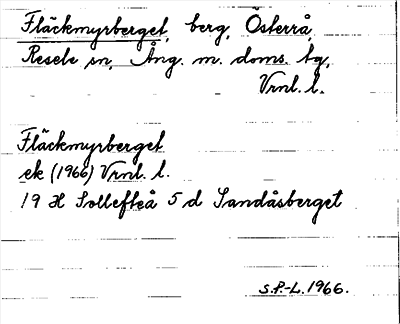 Fläckmyrberget, berg, Österrå,
Resele sn, Ång. m. doms. tg,
Vrnl. l.
Fläckmyrberget
ek (1966) Vrnl. l.
19 H Sollefteå 5 d Sandåsberget
S.P.-L. 1966.